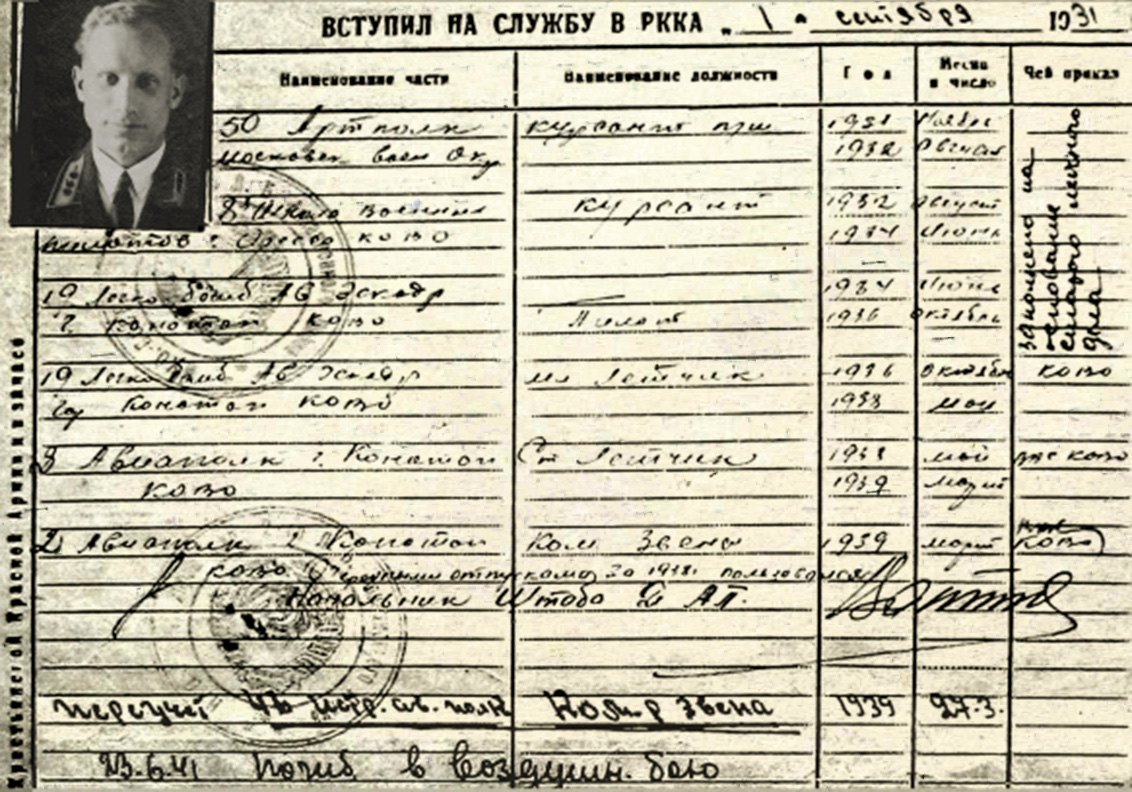 ВСТУПИЛ НА СЛУЖБУ В РККА „ 1 " сентября 1931
Наименование части Наименование должности Год Месяц и число Чей приказ
50 Артполк курсант 1931 Ноябрь
Московск воен Окр 1932 Август
8 Школа военных курсант 1932 Август
пилотов г. Одесса КОВО 1934 Июнь
19 Легко бомб АВ Эскадр 1934 Июнь
г. Конотоп КОВО Пилот 1936 октябрь
заполнено на основание старого личного дела
19 Легко бомб АВ Эскадр мл Летчик 1936 октябрь КОВО
Конотоп КОВО 1938 май
3 Авиаполк г. Конотоп Ст Летчик 1938 май КОВО
КОВО 1939 март
2 Авиаполк г Конотоп Ком Звена 1939 март КОВО
КОВО отпуском за 1938 г. пользовался
Начальник Штаба 2 АП.
ав. полк Комр звена 1939 27.3.
23.6.41 Погиб в воздушн. бою
Крестьянской Красной Армии и значев